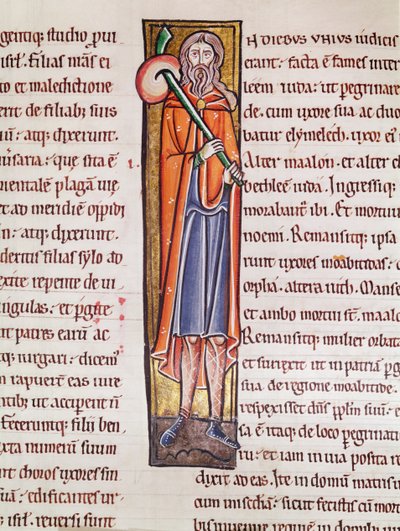 gentiq; studio p̱ui
isrł. Filias m̄as ei
to et maledictione
erit de filiab; suis
atq; dixerunt.
que sita ē
orientalē plagā uie
et ad meridiē opidi
in. atq; dixerunt.
dentis filias sylo ad
exite repente de ui
ingulas: et ꝑgite
ut patres earū ac
iurgari: dicem
rapuerunt eas iure
tib; ut acciperent ñ
Feceruntq; filii ben
uxta numerū suum
choros uxores sin
edificantes ur
isrł. reuersi sunt
N DIEBUS UNIUS iudicis
erant. facta ē fames in ter
leem iuda: ut pegrinare
de. cum uxore sua ac duo
batur elymelech. uxor ei
Alter maalon. et alter ch
bethleē iuda. Ingressiq;
morabant' ibi. Et mortuu
noemi. Remansitq; ipsa
runt uxores moabitidas:
orpha. altera ruth. Manse
et ambo mortui sт. maalo
Remansitq; mulier orbata
et surrexit ut in patriā ꝑg
sua de regione moabitide.
respexisset dñs ppłm suū. e
sa ē itaq; de loco pegrinati
ru. et iam in uia posita re
dixit ad eas. Ite in domū matris
cum misediā: sicut fecistis cū mor
requiem in domib;